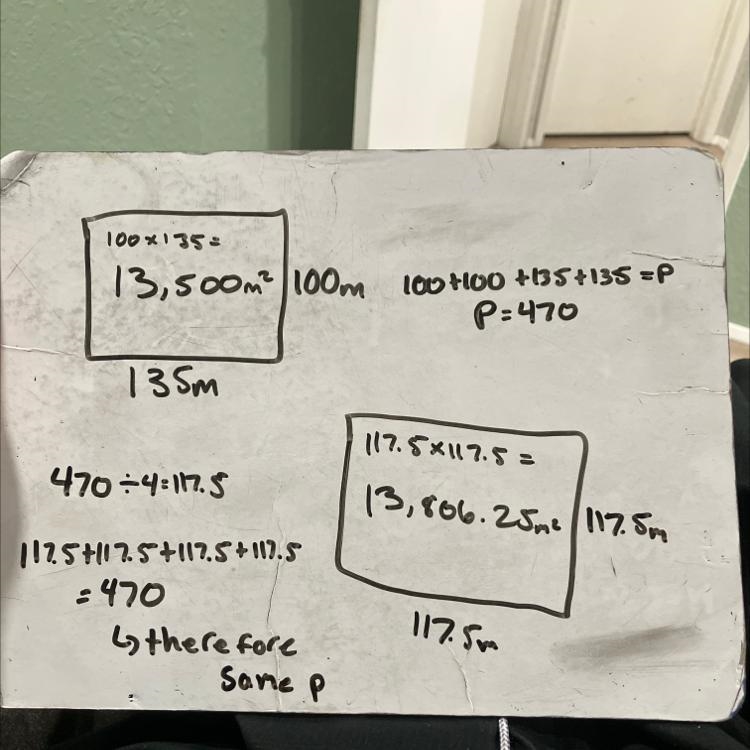 100×135=
13,500m²
100m
135m
100+100+135+135=P
P=470
470÷4=117.5
117.5+117.5+117.5+117.5
=470
↳therefore
same p
117.5×117.5=
13,806.25m²
117.5m
117.5m